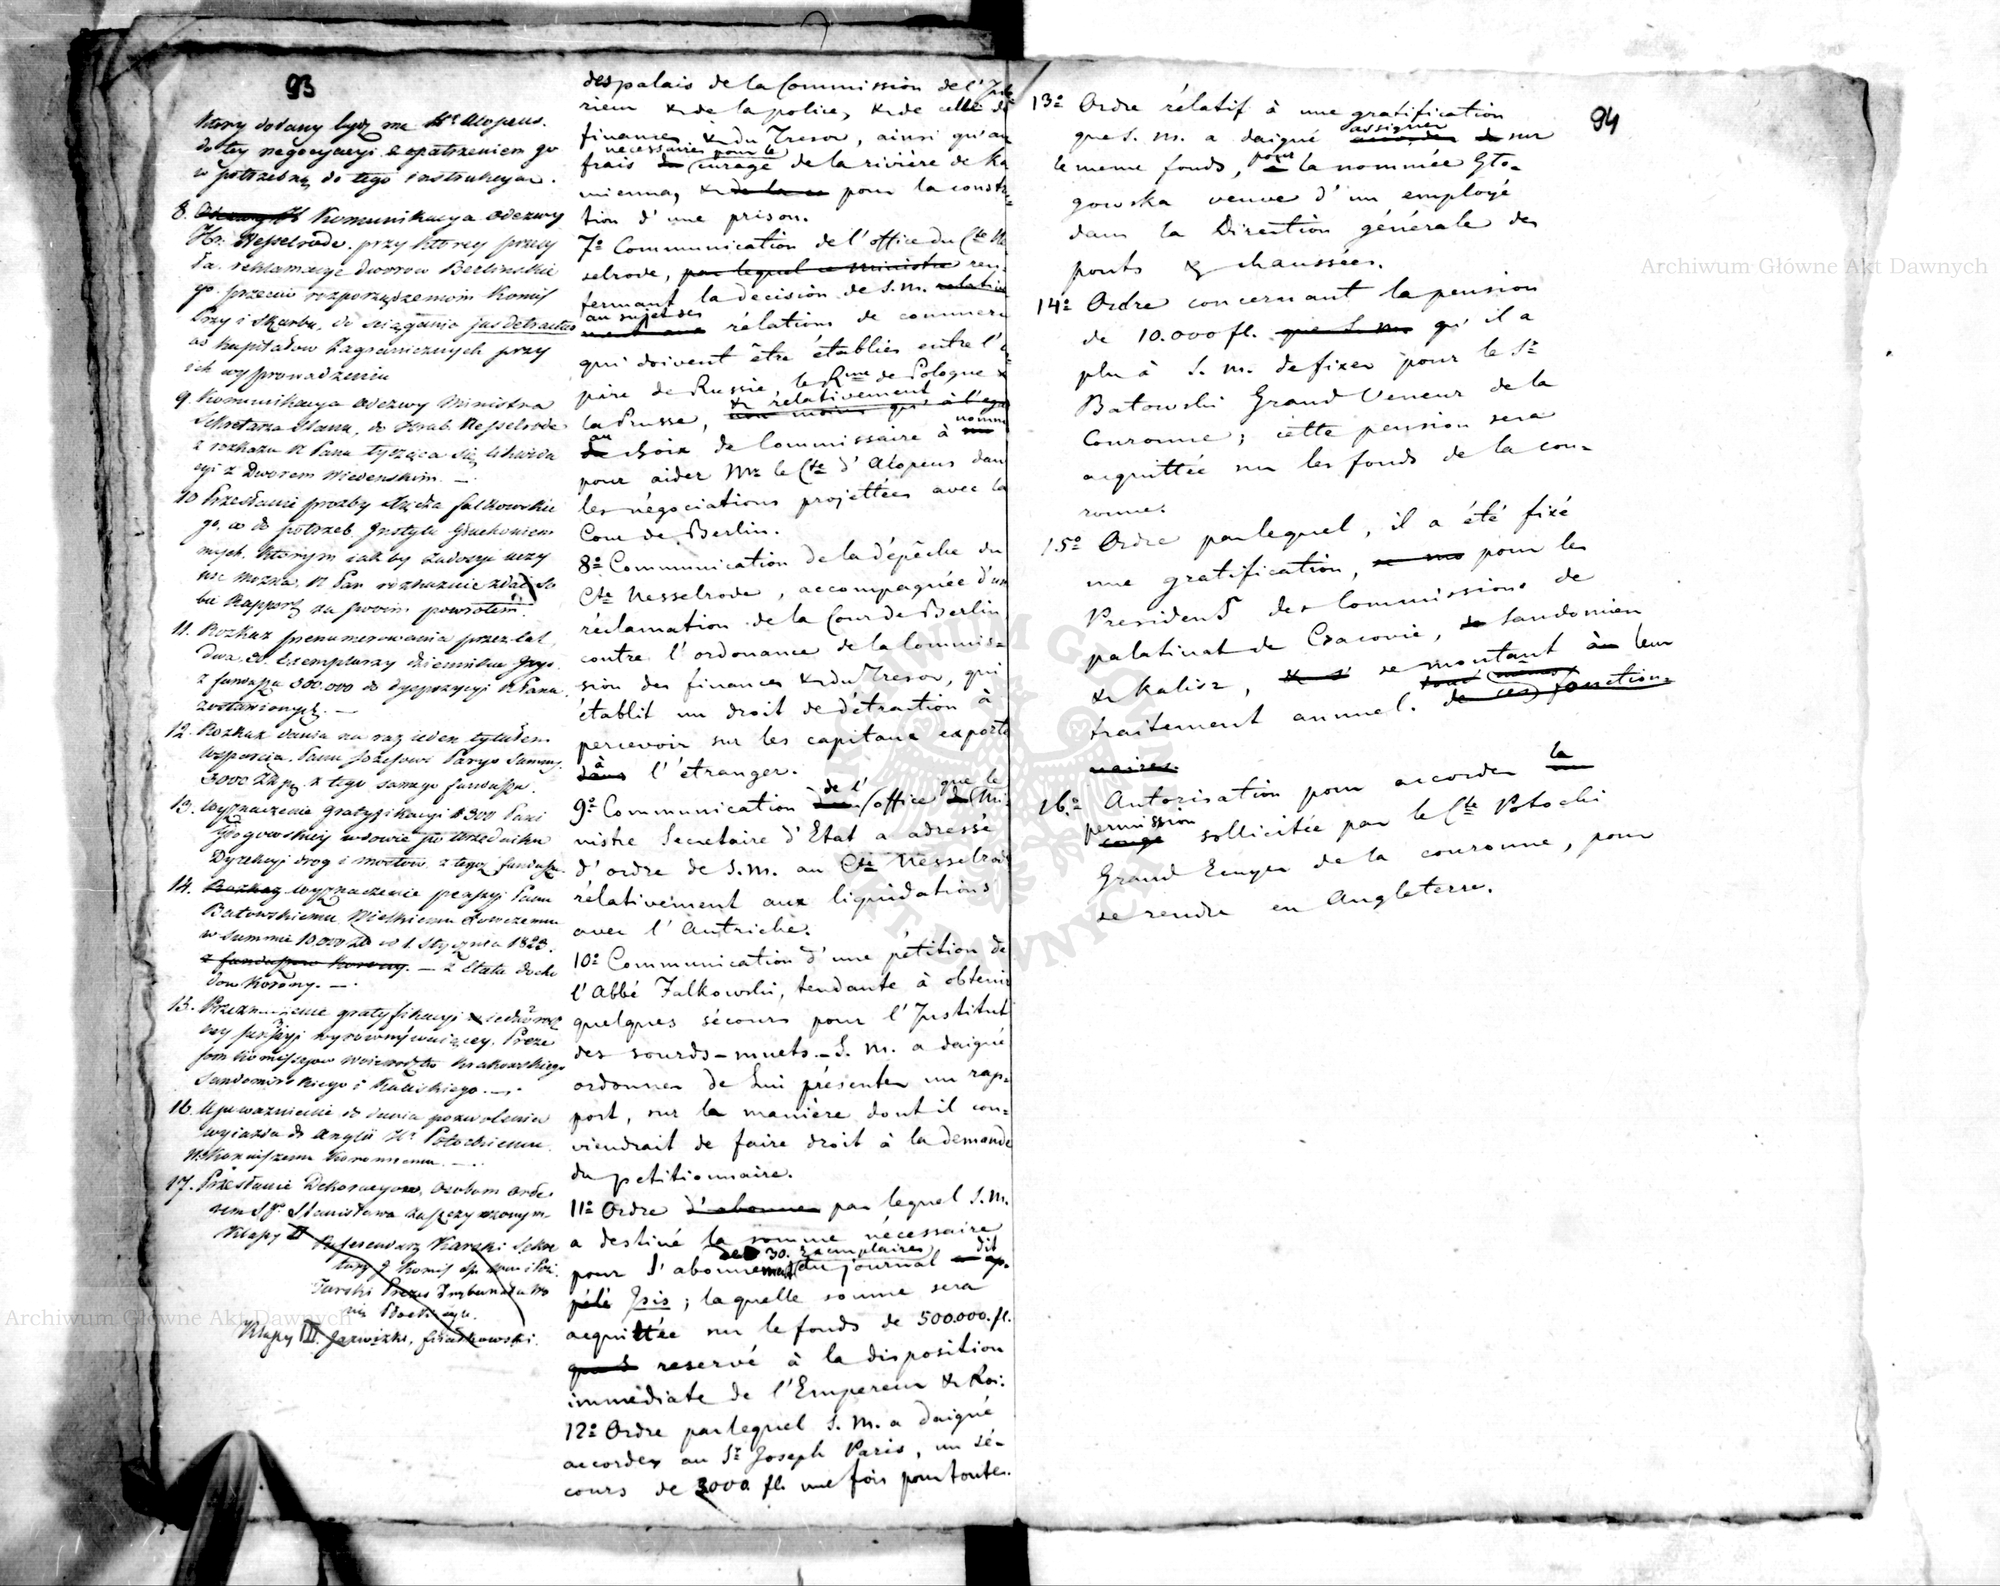 93
który dodany będzie Hr. Alopeus.
do tey negocyacyi z opatrzeniem go
w potrzebną do tego instrukcyą.
8. Komunikacya odezwy
Hr. Nesselrode przy którey przesy
ła reklamacye dworu Berlinskie
go przeciw rozporządzeniom Komis
Przy i Skarbu, do sciągania jus detractus
od kapitałow zagranicznych przy
ich wyprowadzeniu
9. Komunikacya odezwy Ministra
Sekretarza Stanu, do Hrab. Nesselrode
z rozkazu N Pana tycząca się likwida
cyi z Dworem Wiedenskim. —
10 Przesłanie prozby Xiędza Falkowskie
go, co do potrzeb Instytu Głuchoniem
mych. Którym jak by zadosyć uczy
nic mozna, N Pan rozkazuie zdać So
bie Rapport za swoim powrotem.
11. Rozkaz prenumerowania przez lat
dwa, 30. Exemplarzy dziennika Izys
z funduszu 500.000 do dyspozycyi N Pana
zostawionych. —
12. Rozkaz dania na raz ieden tytułem
wsparcia Panu Jozefowi Parys Summy
3000 Zł p. z tego samego funduszu.
13. Wyznaczenie gratyfikacyi # 300 Pani
Głogowskiey wdowie po Urzedniku
Dyrekcyi drog i mostow z tegoż fundusz.
14. Rozkaz wyznaczenie pensyi Panu
Batowskiemu Wielkiemu Łowczemu
w summie 10000 Zł od 1. Stycznia 1823.
z funduszow Korony. — z Etatu docho
dow Korony. —
15. Przeznaczenie gratyfikacyi
cey pensyi wyrownywaiącey. Preze
som Kommissyow Woiewodztw Krakowskiego
Sandomirskiego i Kaliskiego. —
16. Upowaznienie do dania pozwolenia
wyiazdu do Anglii Hr. Potockiemu
W. Koniuszemu Koronnemu. —
17. Przesłanie Dekoracyow, Osobom Orde
rem Sgo. Stanisława zaszczyconym
Klassy II Referendarz Karski Sekre
tarz J. Komis sp. wew i Poi.
Turski Prezes Trybunału Wo
wiz Płockiego.
Klassy III.
des palais de la Commission de l'Inté
rieur & de la police, & de celle de
finances & du Tresor, ainsi qu'au
nécessaires pour le
frais de curage de la rivière de Ka
mienna, & de la ce pour la constr
tion d'une prison.
7º Communication de l'office du Cte Ne
selrode, par lequel ce ministre ren
fermant la decision de S. M. relative
au sujet des
ment aux rélations de commerce
qui doivent être établies entre l'em
pire de Russie, le Rme de Pologne &
& rélativement
la Prusse, non moins qu'à l'ega
au nomme
de choix de Commissaire à
pour aider Mr le Cte d'Alopeus dan
les négociations projettées avec la
Cour de Berlin.
8º Communication de la dépêche du
Cte Nesselrode, accompagnée d'un
réclamation de la Cour de Berlin
contre l'ordonance de la Commis=
sion des finances & du Tresor, qui
établit un droit de détraction à
percevoir sur les capitaux exporté
à
dans l'étranger.
de l' que le
9º Communication office Mi
nistre Secretaire d'Etat a adressé
d'ordre de S. M. au Cte Nesselrode
rélativement aux liquidations
avec l'Autriche.
10º Communication d'une pétition de
l'Abbé Falkowski, tendante à obtenir
quelques sécours pour l'Institut
des sourds-muets. S. M. a daigné
ordonner de Lui présenter un rap=
port, sur la manière dont il con=
viendrait de faire droit à la demande
du petitionnaire.
11º Ordre d'abonner par lequel S. M.
a destiné la somme nécessaire
de 30. exemplaires dit
pour l'abonnement du journal ap-
pélé Isis; laquelle somme sera
acquittée sur le fonds de 500.000. fl.
reservé à la disposition
immédiate de l'Empereur & Roi:
12º Ordre par lequel S. M. a daigné
accorder au Sr Joseph Paris, un sé=
cours de 3000 fl. une fois pour toutes.
94
13º Ordre rélatif à une gratification
assigner
que S. M. a daigné accorder de sur
pour
le meme fonds, à la nommée Gło=
gowska veuve d'un employé
dans la Direction générale des
ponts & chaussées.
14º Ordre concernant la pension
de 10.000 fl. que S. M. qu'il a
plu à S. M. de fixer pour le Sr
Batowski Grand Veneur de la
Couronne; cette pension sera
acquittée sur les fonds de la cou=
ronne.
15º Ordre par lequel, il a été fixé
une gratification, pour les
Presidens des Commissions de
palatinat de Cracovie, de Sandomir
& Kalisz, se montant à leur
traitement annuel. de ces fonction=
naires.
16º Autorisation pour accorder la
permission
congé sollicitée par le Cte Potocki
Grand Ecuyer de la couronne, pour
se rendre en Angleterre.
Archiwum Główne Akt Dawnych
Archiwum Główne Akt Dawnych
ARCHIWUM GŁÓWNE AKT DAWNYCH